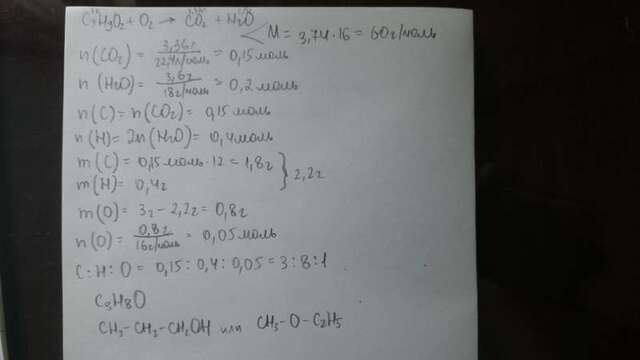 CxHyO2 + O2 → CO2 + H2O
M = 3,74·16 = 60г/моль
n(CO2) = 3,36л / 22,4л/моль = 0,15 моль
n(H2O) = 3,6г / 18г/моль = 0,2 моль
n(C) = n(CO2) = 0,15 моль
n(H) = 2n(H2O) = 0,4моль
m(C) = 0,15 моль·12 = 1,8г } 2,2г
m(H) = 0,4г
m(O) = 3г - 2,2г = 0,8г
n(O) = 0,8г / 16г/моль = 0,05 моль
C:H:O = 0,15 : 0,4 : 0,05 = 3:8:1
C3H8O
CH3-CH2-CH2OH или CH3-O-C2H5